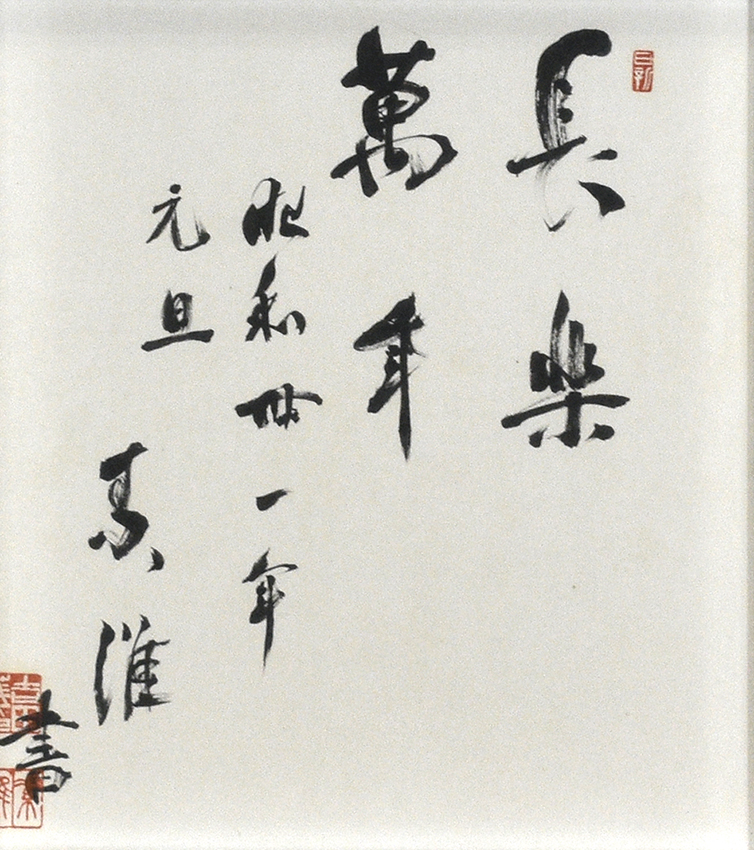 長楽
萬年
昭和卅一年
元旦
書